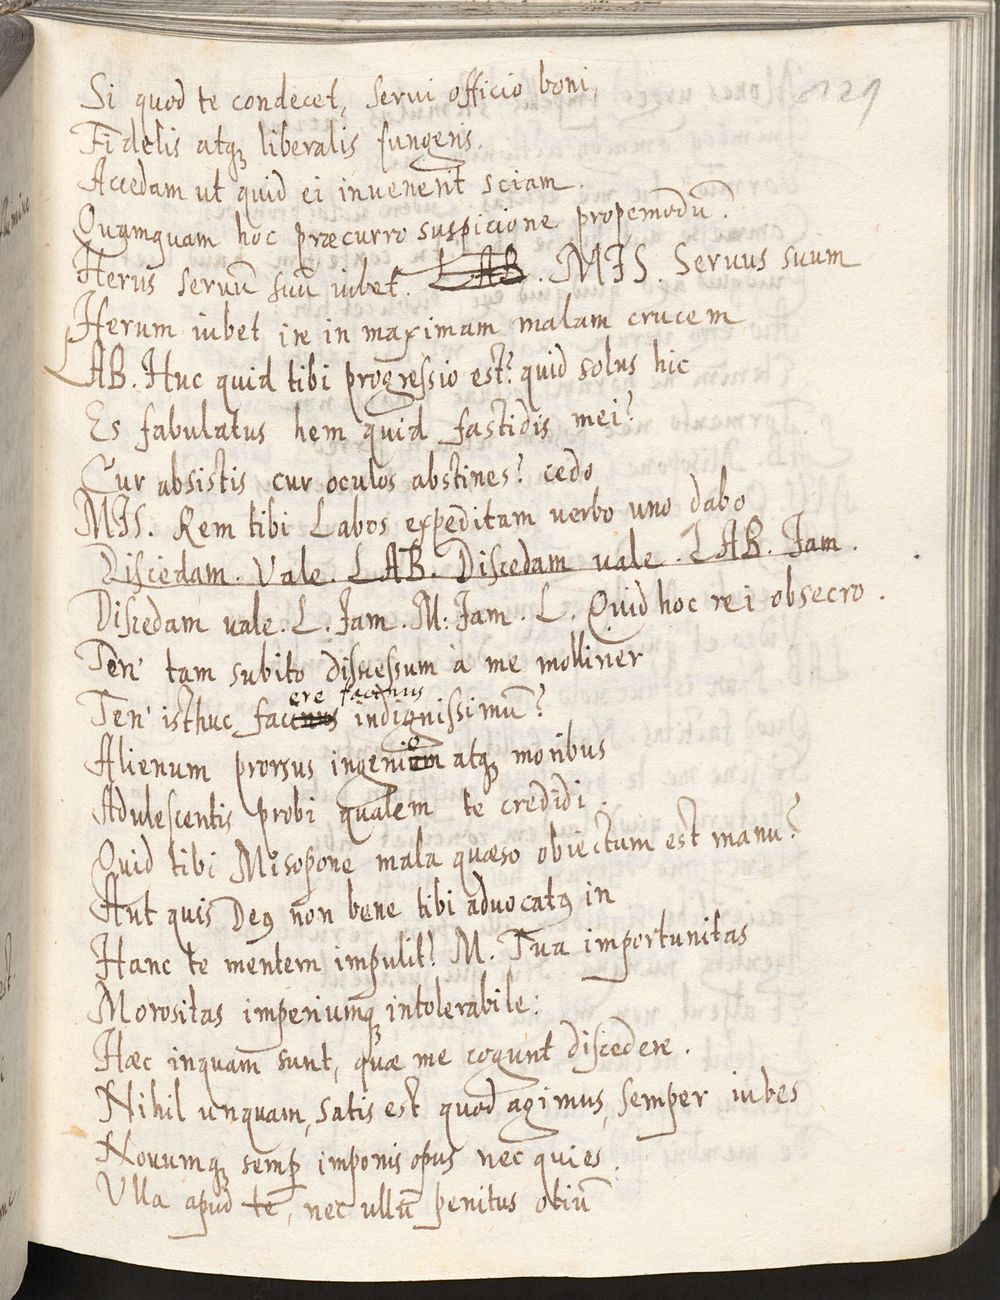 129
Si quod te condecet, servi officio boni
Fidelis atq; liberalis fungeris.
Accedam ut quid ei invenerit sciam.
Quamquam hoc præcurro suspicione propemodū.
Herus servū suū iubet. LAB. MIS. Servus suum
Herum iubet ire in maximam malam crucem
LAB. Huc quid tibi progressio est? quid solus hic
Es fabulatus hem quid fastidis mei?
Cur absistis cur oculos abstines? cedo
MIS. Rem tibi Labos expeditam verbo uno dabo
Discedam. Vale. LAB. Discedam vale. LAB. Jam.
Discedam vale. L. Jam. M: Jam. L. Quid hoc rei obsecro.
Ten' tam subito discessum à me molirier
ere facinus
Ten' isthuc facinus indignissimū?
Alienum prorsus ingenio atq; moribus
Adulescentis probi qualem te credidi.
Quid tibi Misopone mala quæso obiectum est manu?
Aut quis Deq non bene tibi advocatq in
Hanc te mentem impulit? M. Tua importunitas
Morositas imperiumq; intolerabile:
Hæc inquam sunt, quæ me cogunt discedere.
Nihil unquam, satis est quod agimus, semper iubes
Novumq; semp imponis opus nec quies.
Ulla apud te, nec ullū penitus otiū